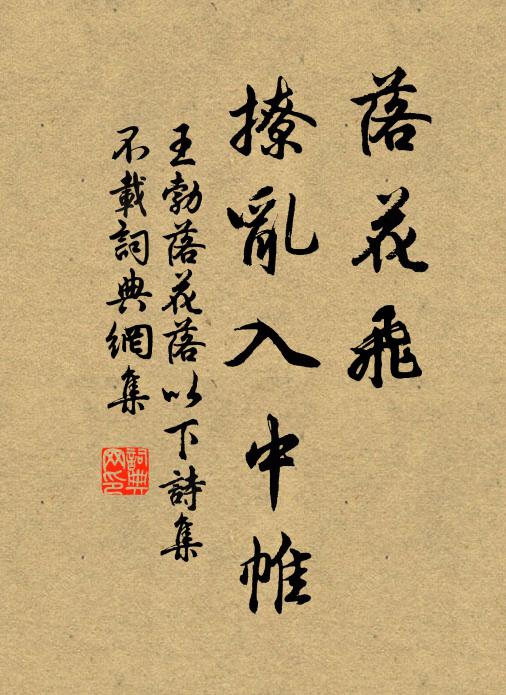 落花飛
撩亂入中帷
王勃落花落以下詩集
不載詞典網集
詞典
网印